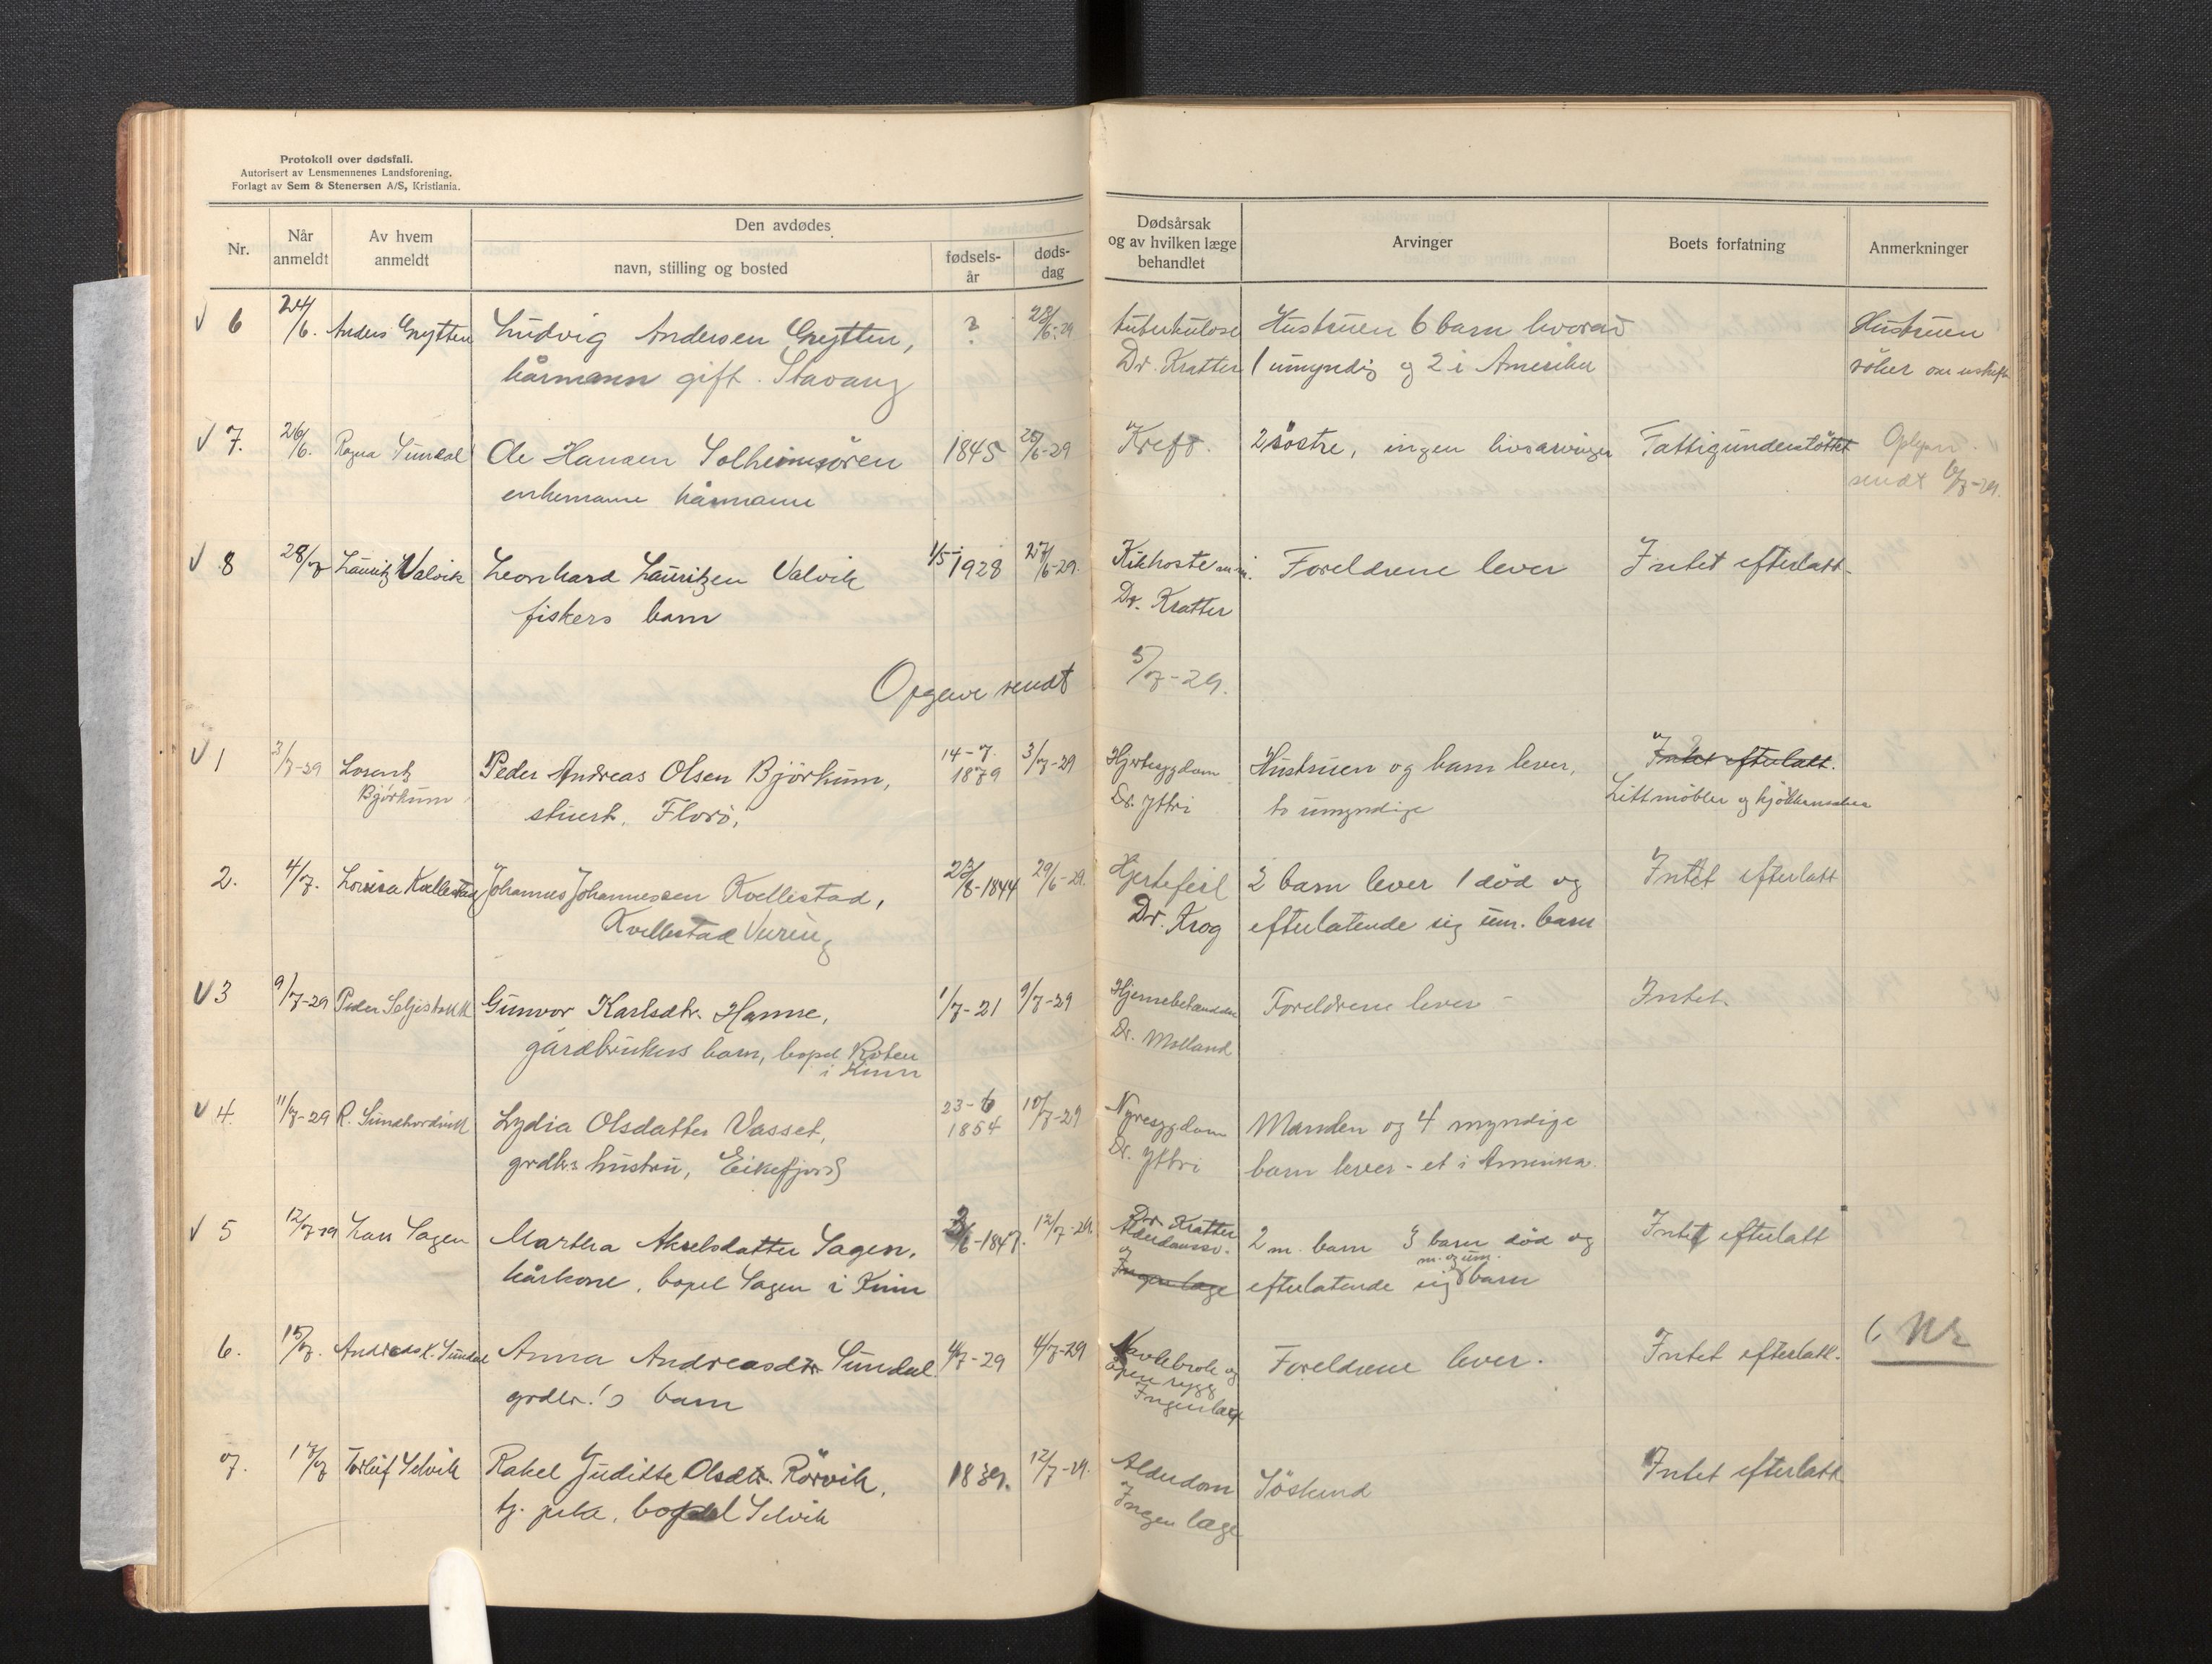 Protokoll over dødsfall.
Autorisert av Lensmennenes Landsforening.
Forlagt av Sem & Stenersen A/S, Kristiania.
Nr.
Når anmeldt
Av hvem anmeldt
Den avdødes
navn, stilling og bosted
fødsels-år
døds-dag
Dødsårsak og av hvilken læge behandlet
Arvinger
Boets forfatning
Anmerkninger
V 6 24/6. Anders Grytten Ludvig Andersen Grytten, ? 23/6-29 tuberkulose Hustruen 6 barn hvorav Hustruen
kårmann gift. Stavang Dr. Kratter 1 umyndig og 2 i Amerika søker om
V 7. 26/6. Ragna Sundal Ole Hansen Solheimsøren 1845 /6-29 Kreft. 2 søstre, ingen livsarvinger Fattigunderstøttet
enkemann kårmann sendt 6/7-29.
V 8 28/7 Lauritz Valvik Leonhard Lauritzen Valvik 1/5-1928 27/6-29. Kikhoste Foreldrene lever Intet efterlatt
fiskers barn Dr. Kratter
Opgave sendt 5/7-29.
V 1 3/7-29 Lorentz Bjørkum Peder Andreas Olsen Bjørkum, 14-7. 1879 3/7-29 Hjertesygdom Hustruen og barn lever, Intet efterlatt.
stuert, Florø, Dr. Yttri to umyndige Litt møbler og
2. 4/7. Lovisa Kvellestad Johannes Johannessen Kvellestad, 23/8-1844 29/6-29. Hjertefeil 2 barn lever 1 død og Intet efterlatt
Kvellestad Dr. Krog efterlatende sig um. barn
V 3 9/7-29 Peder Gunvor Karlsdtr. Hanne, 1/7-21 9/7-29 Foreldrene lever - Intet.
gårdbrukers barn, bopel i Kinn Dr. Molland
V 4. 11/7-29 R. Lydia Olsdatter Vasset, 23-6 1854 10/7-29 Nyresygdom Manden og 4 myndige
grdbrs hustru, Eikefjord Dr. Yttri barn lever - et i Amerika.
V 5 12/7-29 Lars Sagen Martha Akselsdatter Sagen, /6-1847. 12/7-29. Dr. Kratter 2 m. barn 3 barn død og Intet efterlatt
kårkone, bopel Sagen i Kinn Ingen læge efterlatende sig m. og um. barn
6. 15/7. Andreas K. Sundal Anna Andreasdtr. Sundal 4/7-29 4/7-29 Navlebrok og Foreldrene lever. Intet efterlatt. 6 Nr
grdbr.'s barn åpen rygg
Ingen læge
7. 17/7 Torleif Selvik Rakel Juditte Olsdtr. Rørvik, 1839. 12/7-29. Alderdom Søskend Intet efterlatt
tj. pike, bopel Selvik Ingen læge